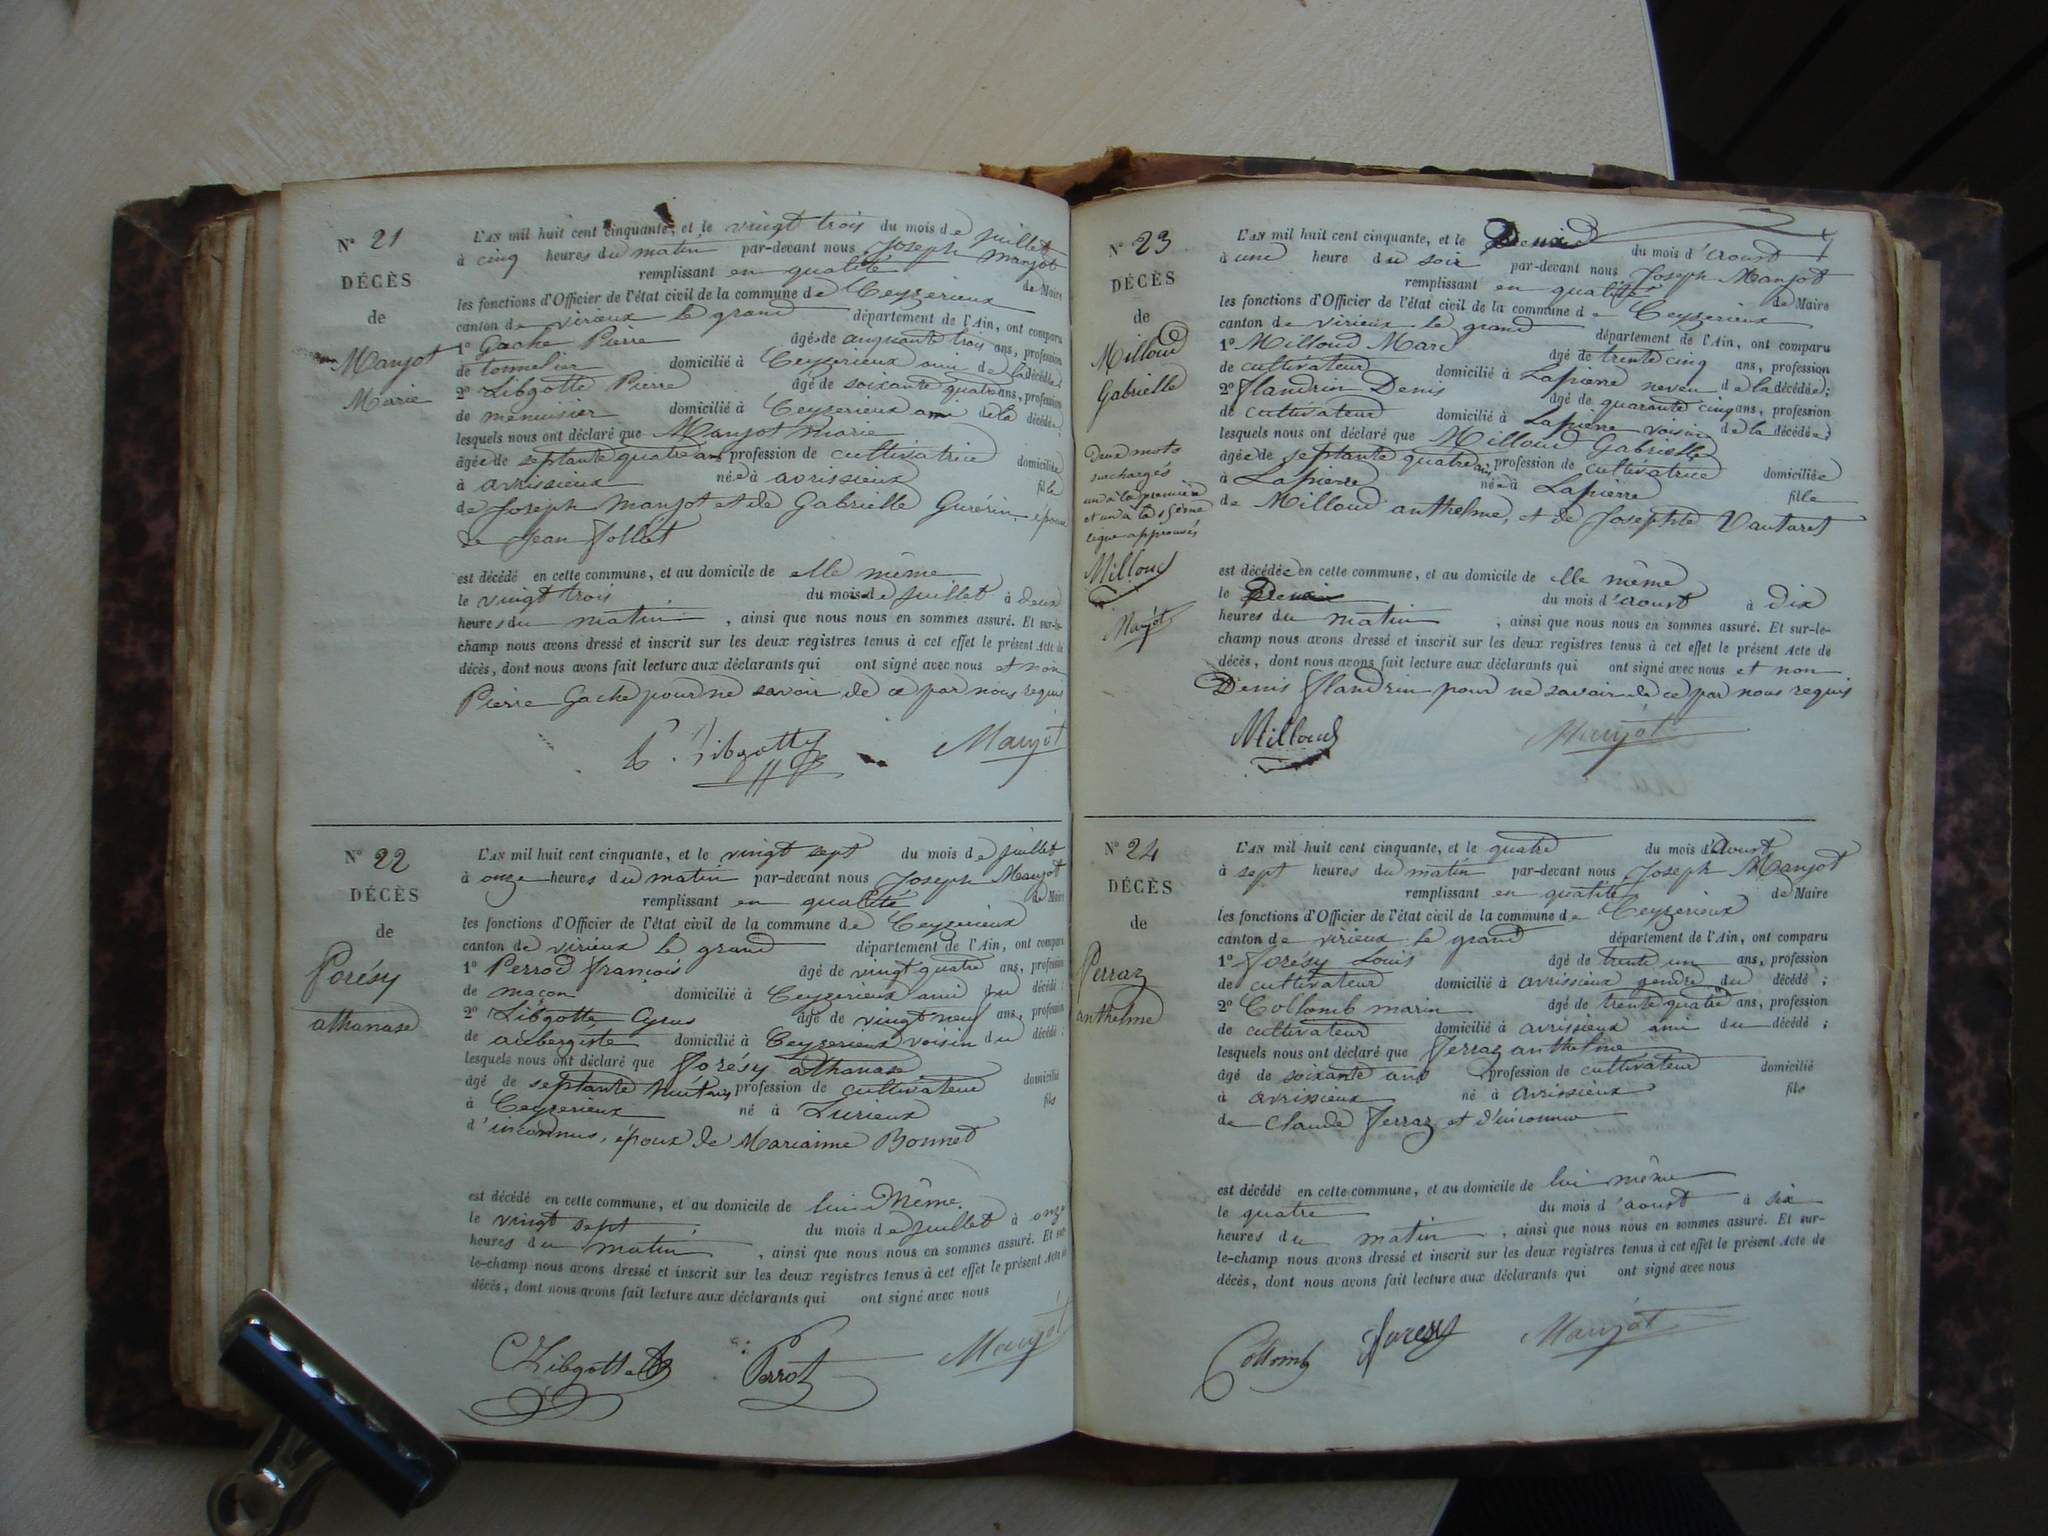 N° 21
DÉCÈS
de
Manjot
Marie
L'AN mil huit cent cinquante, et le vingt trois du mois de juillet
à cinq heures du matin par-devant nous Joseph Manjot
remplissant en qualité de Maire
les fonctions d'Officier de l'état civil de la commune de Ceyzerieux
canton de virieux le grand département de l'Ain, ont comparu
1° Gache Pierre âgé de cinquante trois ans, profession
de tonnelier domicilié à Ceyzerieux ami de la décédée
2° Libgotte Pierre âgé de soixante quatre ans, profession
de menuisier domicilié à Ceyzerieux ami de la décédée;
lesquels nous ont déclaré que Manjot marie
âgée de septante quatre ans profession de cultivatrice domiciliée
à avrissieux née à avrissieux fille
de Joseph manjot et de Gabrielle Guérin, épouse
de Jean Follet
est décédé en cette commune, et au domicile de elle même
le vingt trois du mois de juillet à deux
heures du matin, ainsi que nous nous en sommes assuré. Et sur-le-
champ nous avons dressé et inscrit sur les deux registres tenus à cet effet le présent Acte de
décès, dont nous avons fait lecture aux déclarants qui ont signé avec nous et non
Pierre Gache pour ne savoir de ce par nous requis
P. Libgotte Manjot
N° 22
DÉCÈS
de
Forésy
athanase
L'AN mil huit cent cinquante, et le vingt sept du mois de juillet
à onze heures du matin par-devant nous Joseph Manjot
remplissant en qualité de Maire
les fonctions d'Officier de l'état civil de la commune de Ceyzerieux
canton de virieux le grand département de l'Ain, ont comparu
1° Perrod françois âgé de vingt quatre ans, profession
de maçon domicilié à Ceyzerieux ami du décédé
2° Libgotte Cyrus âgé de vingt neuf ans, profession
de aubergiste domicilié à Ceyzerieux voisin du décédé
lesquels nous ont déclaré que Forésy athanase
âgé de septante huit ans profession de cultivateur domicilié
à Ceyzerieux né à Lurieux fils
d'inconnus, époux de Marianne Bonnet
est décédé en cette commune, et au domicile de lui Même.
le vingt sept du mois de juillet à onze
heures du matin, ainsi que nous nous en sommes assuré. Et sur-
le-champ nous avons dressé et inscrit sur les deux registres tenus à cet effet le présent Acte de
décès, dont nous avons fait lecture aux déclarants qui ont signé avec nous
C Libgotte Perrod Manjot
N° 23
DÉCÈS
de
Milloud
Gabrielle
Deux mots
surchargés
un à la première
et un à la 15ème
ligne approuvés
Milloud
Manjot
L'AN mil huit cent cinquante, et le Deux du mois d'aoust
à une heure du soir par-devant nous Joseph Manjot
remplissant en qualité de Maire
les fonctions d'Officier de l'état civil de la commune de Ceyzerieux
canton de virieux le grand département de l'Ain, ont comparu
1° Milloud Marc âgé de trente cinq ans, profession
de cultivateur domicilié à Lapierre neveu de la décédée;
2° Flandrin Denis âgé de quarante cinq ans, profession
de cultivateur domicilié à Lapierre voisin de la décédée;
lesquels nous ont déclaré que Milloud Gabrielle
âgée de septante quatre ans profession de cultivatrice domiciliée
à Lapierre née à Lapierre fille
de Milloud anthelme, et de Josephte Vautaret
est décédée en cette commune, et au domicile de elle même
le Deux du mois d'aoust à dix
heures du matin, ainsi que nous nous en sommes assuré. Et sur-le-
champ nous avons dressé et inscrit sur les deux registres tenus à cet effet le présent Acte de
décès, dont nous avons fait lecture aux déclarants qui ont signé avec nous et non
Denis Flandrin pour ne savoir de ce par nous requis
Milloud Manjot
N° 24
DÉCÈS
de
Ferraz
anthelme
L'AN mil huit cent cinquante, et le quatre du mois d'Aoust
à sept heures du matin par-devant nous Joseph Manjot
remplissant en qualité de Maire
les fonctions d'Officier de l'état civil de la commune de Ceyzerieux
canton de virieux le grand département de l'Ain, ont comparu
1° Forésy Louis âgé de trente un ans, profession
de cultivateur domicilié à avrissieux gendre du décédé;
2° Collomb marin âgé de trente quatre ans, profession
de cultivateur domicilié à avrissieux ami du décédé;
lesquels nous ont déclaré que Ferraz anthelme
âgé de soixante ans profession de cultivateur domicilié
à avrissieux né à avrissieux fils
de Claude Ferraz et d'inconnue
est décédé en cette commune, et au domicile de lui même
le quatre du mois d'aoust à six
heures du matin, ainsi que nous nous en sommes assuré. Et sur-
le-champ nous avons dressé et inscrit sur les deux registres tenus à cet effet le présent Acte de
décès, dont nous avons fait lecture aux déclarants qui ont signé avec nous
Collomb Foresy Manjot